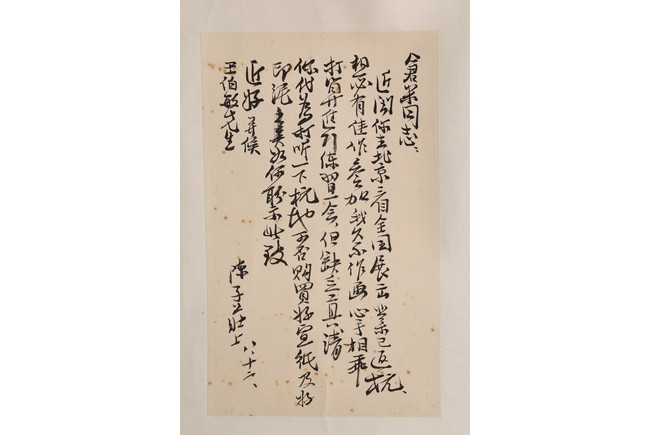 仓米同志：
近闻你去北京参观全国展出，业已返杭，
想必有佳作参加，我久不作画，心手相乖，
打算再进行练习一会，但缺乏工具，请
你代为打听一下杭地可否购买好宣纸及好
印泥，如何盼示，此致
近好 并候
王伯敏先生
陈子庄上 八、十六、